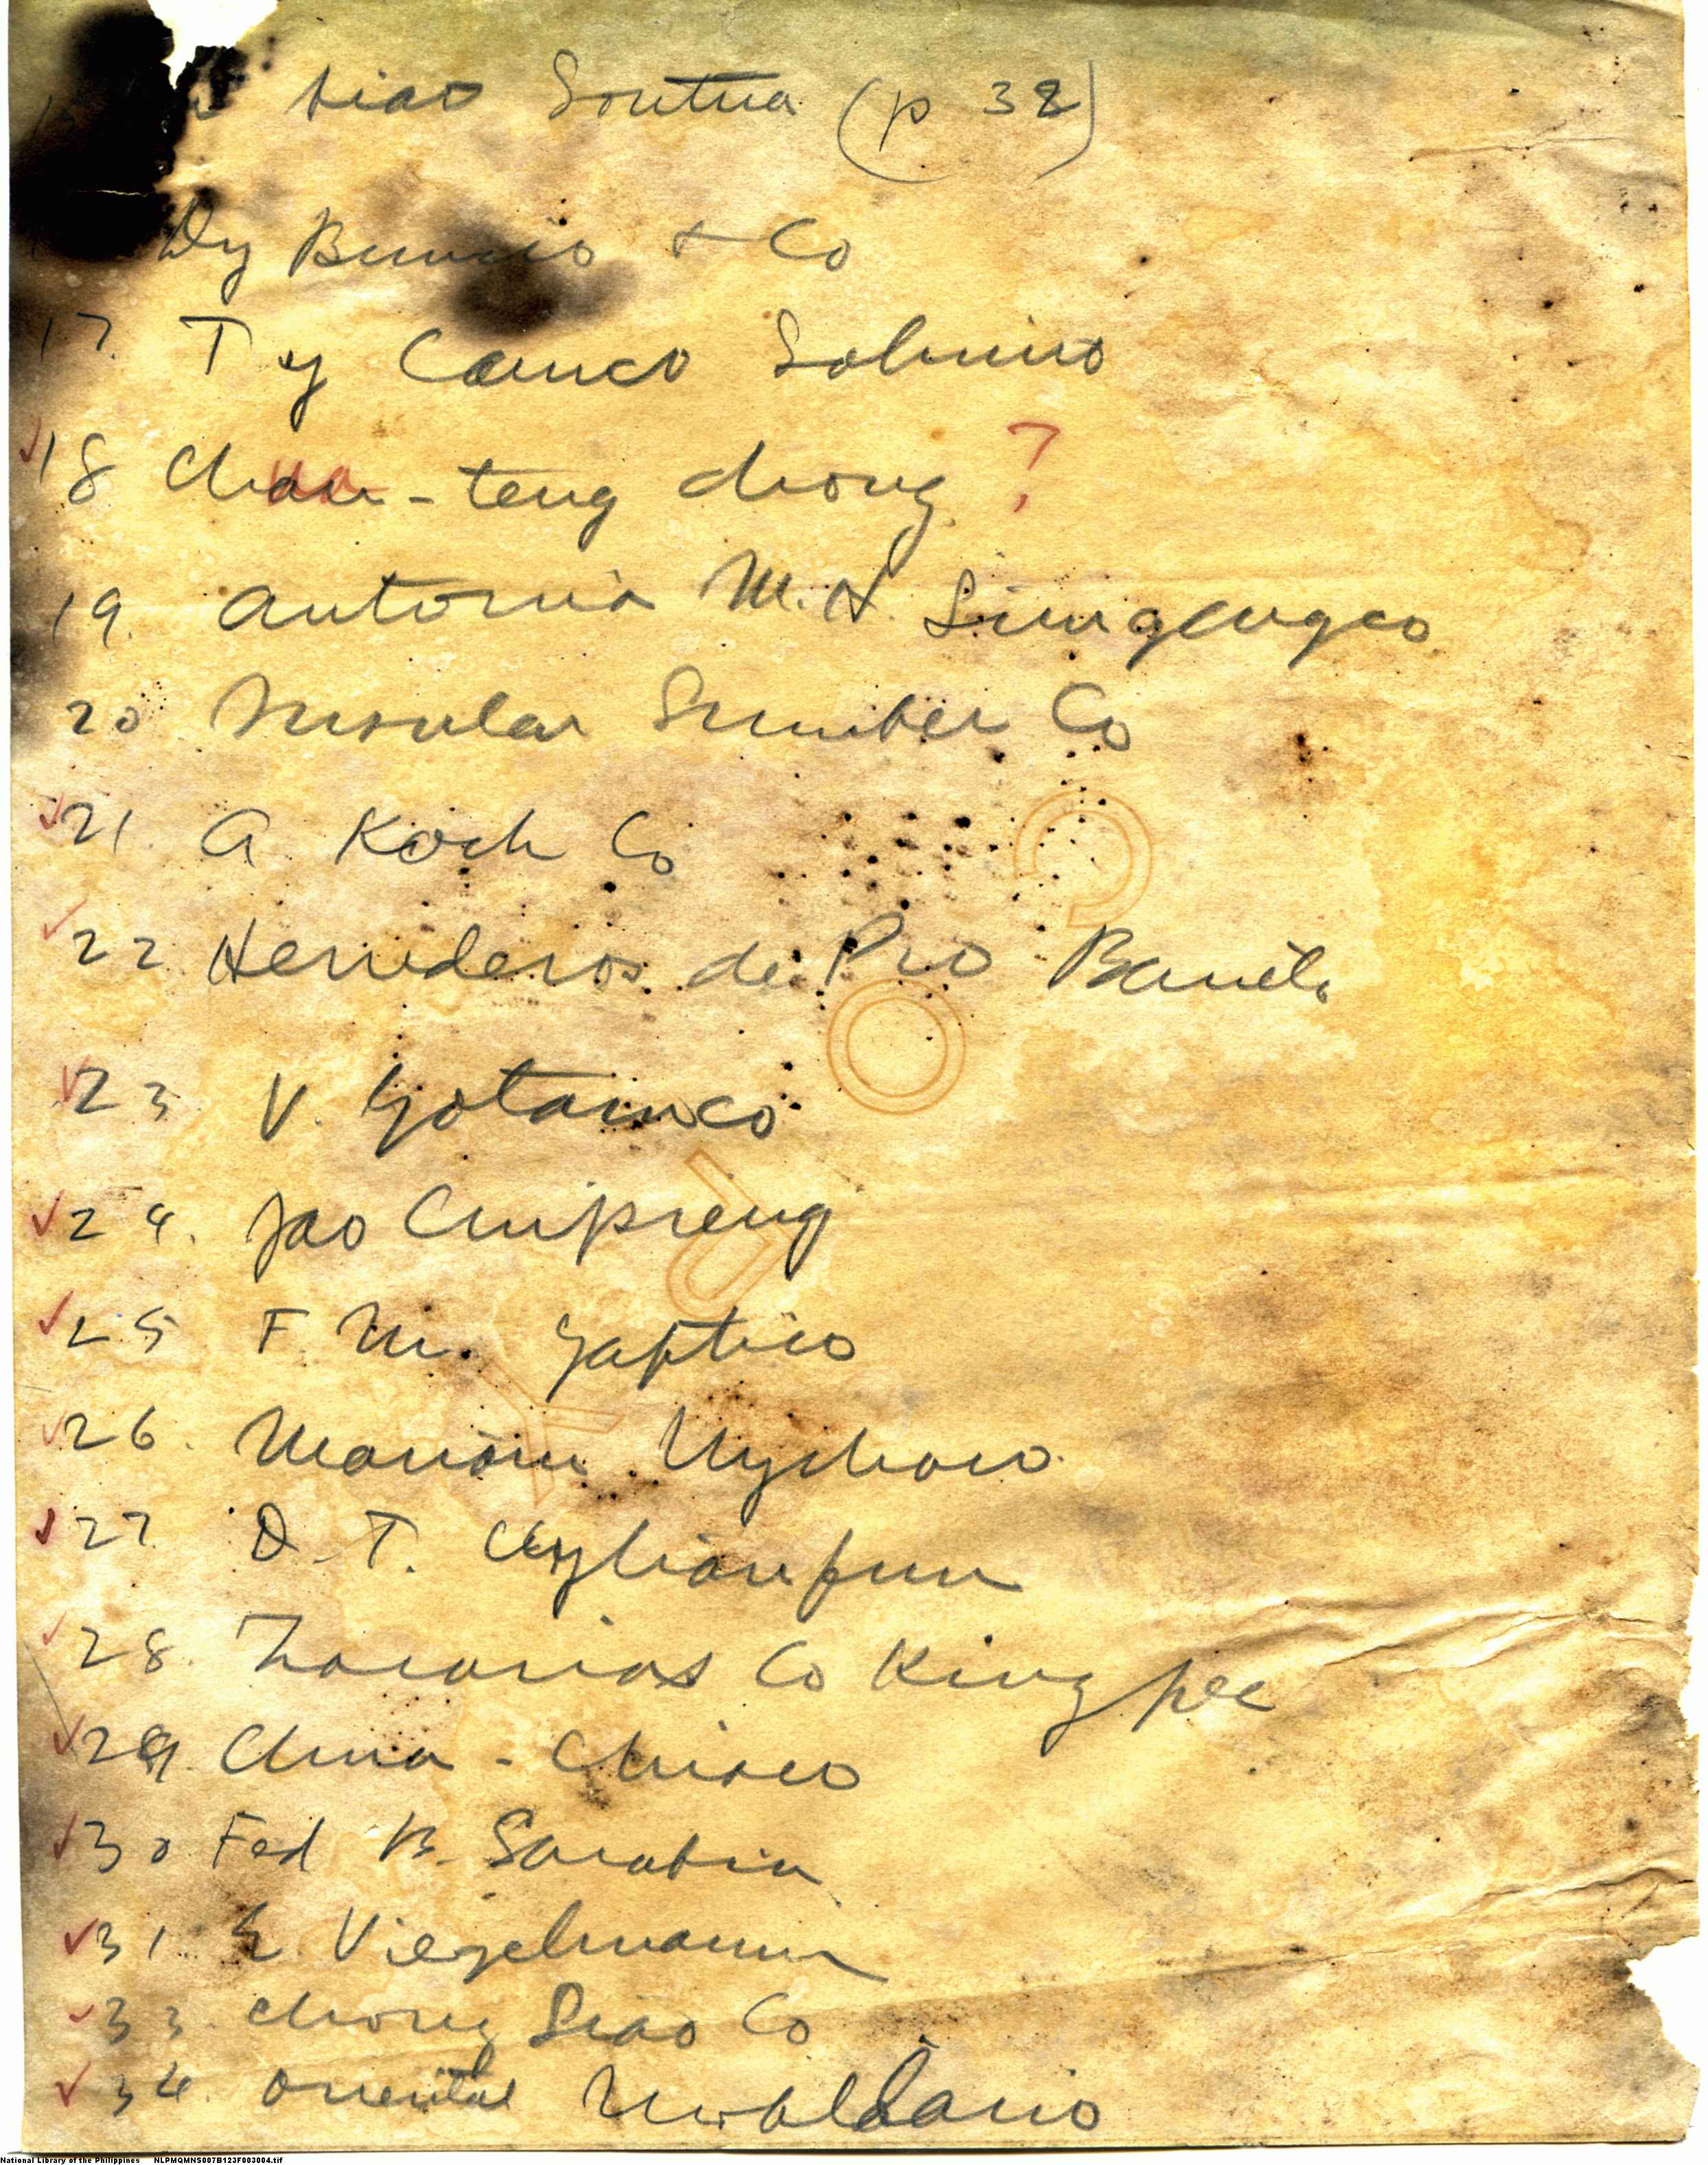 Siao Sontua (p 32)
Dy Buncio & Co
17. Ty Camco Sobrino
18 Chua-teng chong ?
19. Antonio M. H. Limgengco
20 Insular Lumber Co
21. A Koch Co
22 Herederos de Pio Barrett
23 V. Gotamco
24. Jao Cunpieng
25 F M. Yaptico
26. Mariano Uychoco
27. D. T. Uylianfun
28. Zacarias Co Kingpee
29. China - Chiaco
30 Fed B. Sarabia
31 E Viegelmann
33. Chong Siao Co
34. Oriental
YUCO
National Library of the Philippines NLPMQMNS007B123F003004.tif